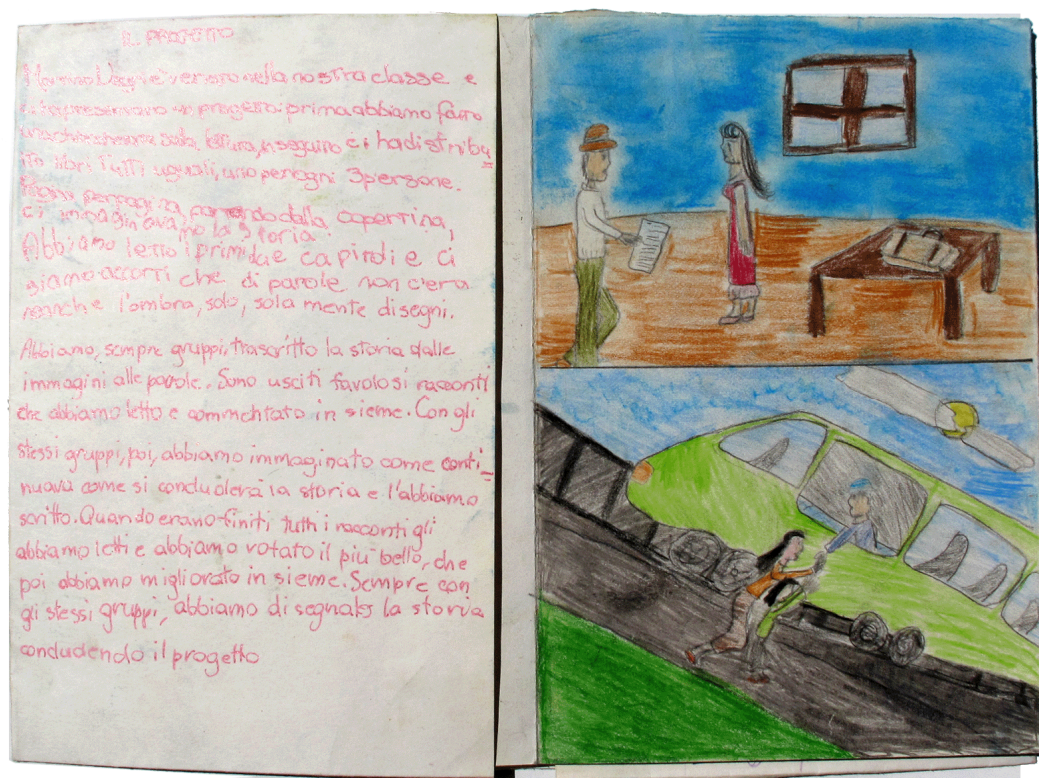 IL PROGETTO
è venuto nella nostra classe e
progetto: prima abbiamo fatto
lettura, in seguito ci ha distribu
ito libri tutti uguali, uno per ogni 3 persone.
partendo dalla copertina,
ci immaginavamo la storia.
Abbiamo letto i primi due capitoli e ci
siamo accorti che di parole non c'era
neanche l'ombra, solo, sola mente disegni.
Abbiamo, sempre gruppi, trascritto la storia dalle
immagini alle parole. Sono usciti favolosi racconti
che abbiamo letto e commentato in sieme. Con gli
stessi gruppi, poi, abbiamo immaginato come conti_
nuava come si concluderà la storia e l'abbiamo
scritto. Quando erano finiti tutti i racconti gli
abbiamo letti e abbiamo votato il più bello, che
poi abbiamo migliorato in sieme. Sempre con
gli stessi gruppi, abbiamo disegnato la storia
concludendo il progetto